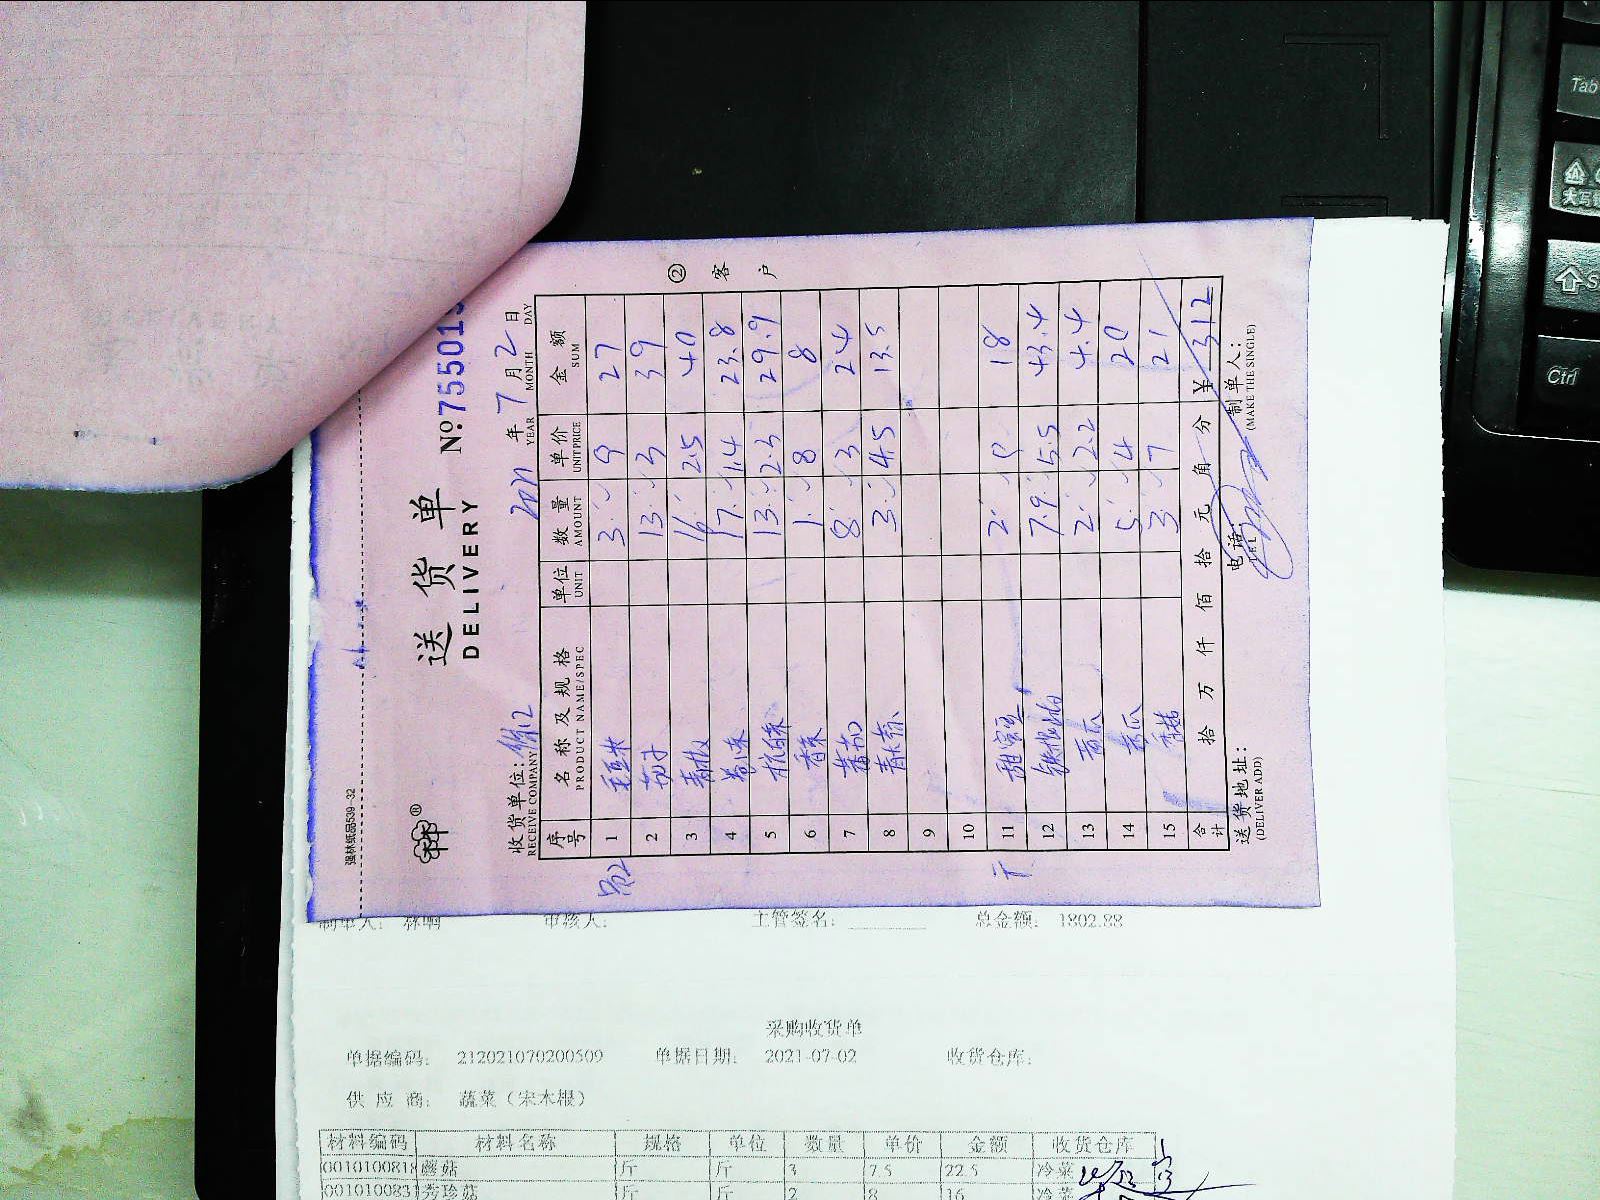 强林纸品539-32
送货单
DELIVERY
№755019
② 客户
收货单位:
RECEIVE COMPANY
2021 年 7 月 2 日
YEAR MONTH DAY
序号 名称及规格 单位 数量 单价 金额
PRODUCT NAME/SPEC UNIT AMOUNT UNITPRICE SUM
1 毛豆米 3 9 27
2 茄子 13 3 39
3 青椒 16 2.5 40
4 卷心菜 17 1.4 23.8
5 杭白菜 13 2.3 29.9
6 香菜 1 8 8
7 蕃茄 8 3 24
8 3 4.5 13.5
9
10
11 甜蜜豆 2 9 18
12 7.9 5.5 43.4
13 2 2.2 4.4
14 黄瓜 5 4 20
15 3 7 21
合计 拾 万 仟 佰 拾 元 角 分 ¥ 312
送货地址:
(DELIVER ADD)
电话:
TEL
制单人:
(MAKE THE SINGLE)
制单人: 审核人: 主管签名: 总金额: 1802.88
采购收货单
单据编码: 212021070200509 单据日期: 2021-07-02 收货仓库:
供应商: 蔬菜(宋木根)
材料编码 材料名称 规格 单位 数量 单价 金额 收货仓库
0010100818 蘑菇 斤 斤 3 7.5 22.5 冷菜
001010083 秀珍菇 斤 斤 2 8 16 冷菜
Tab
大写
Ctrl